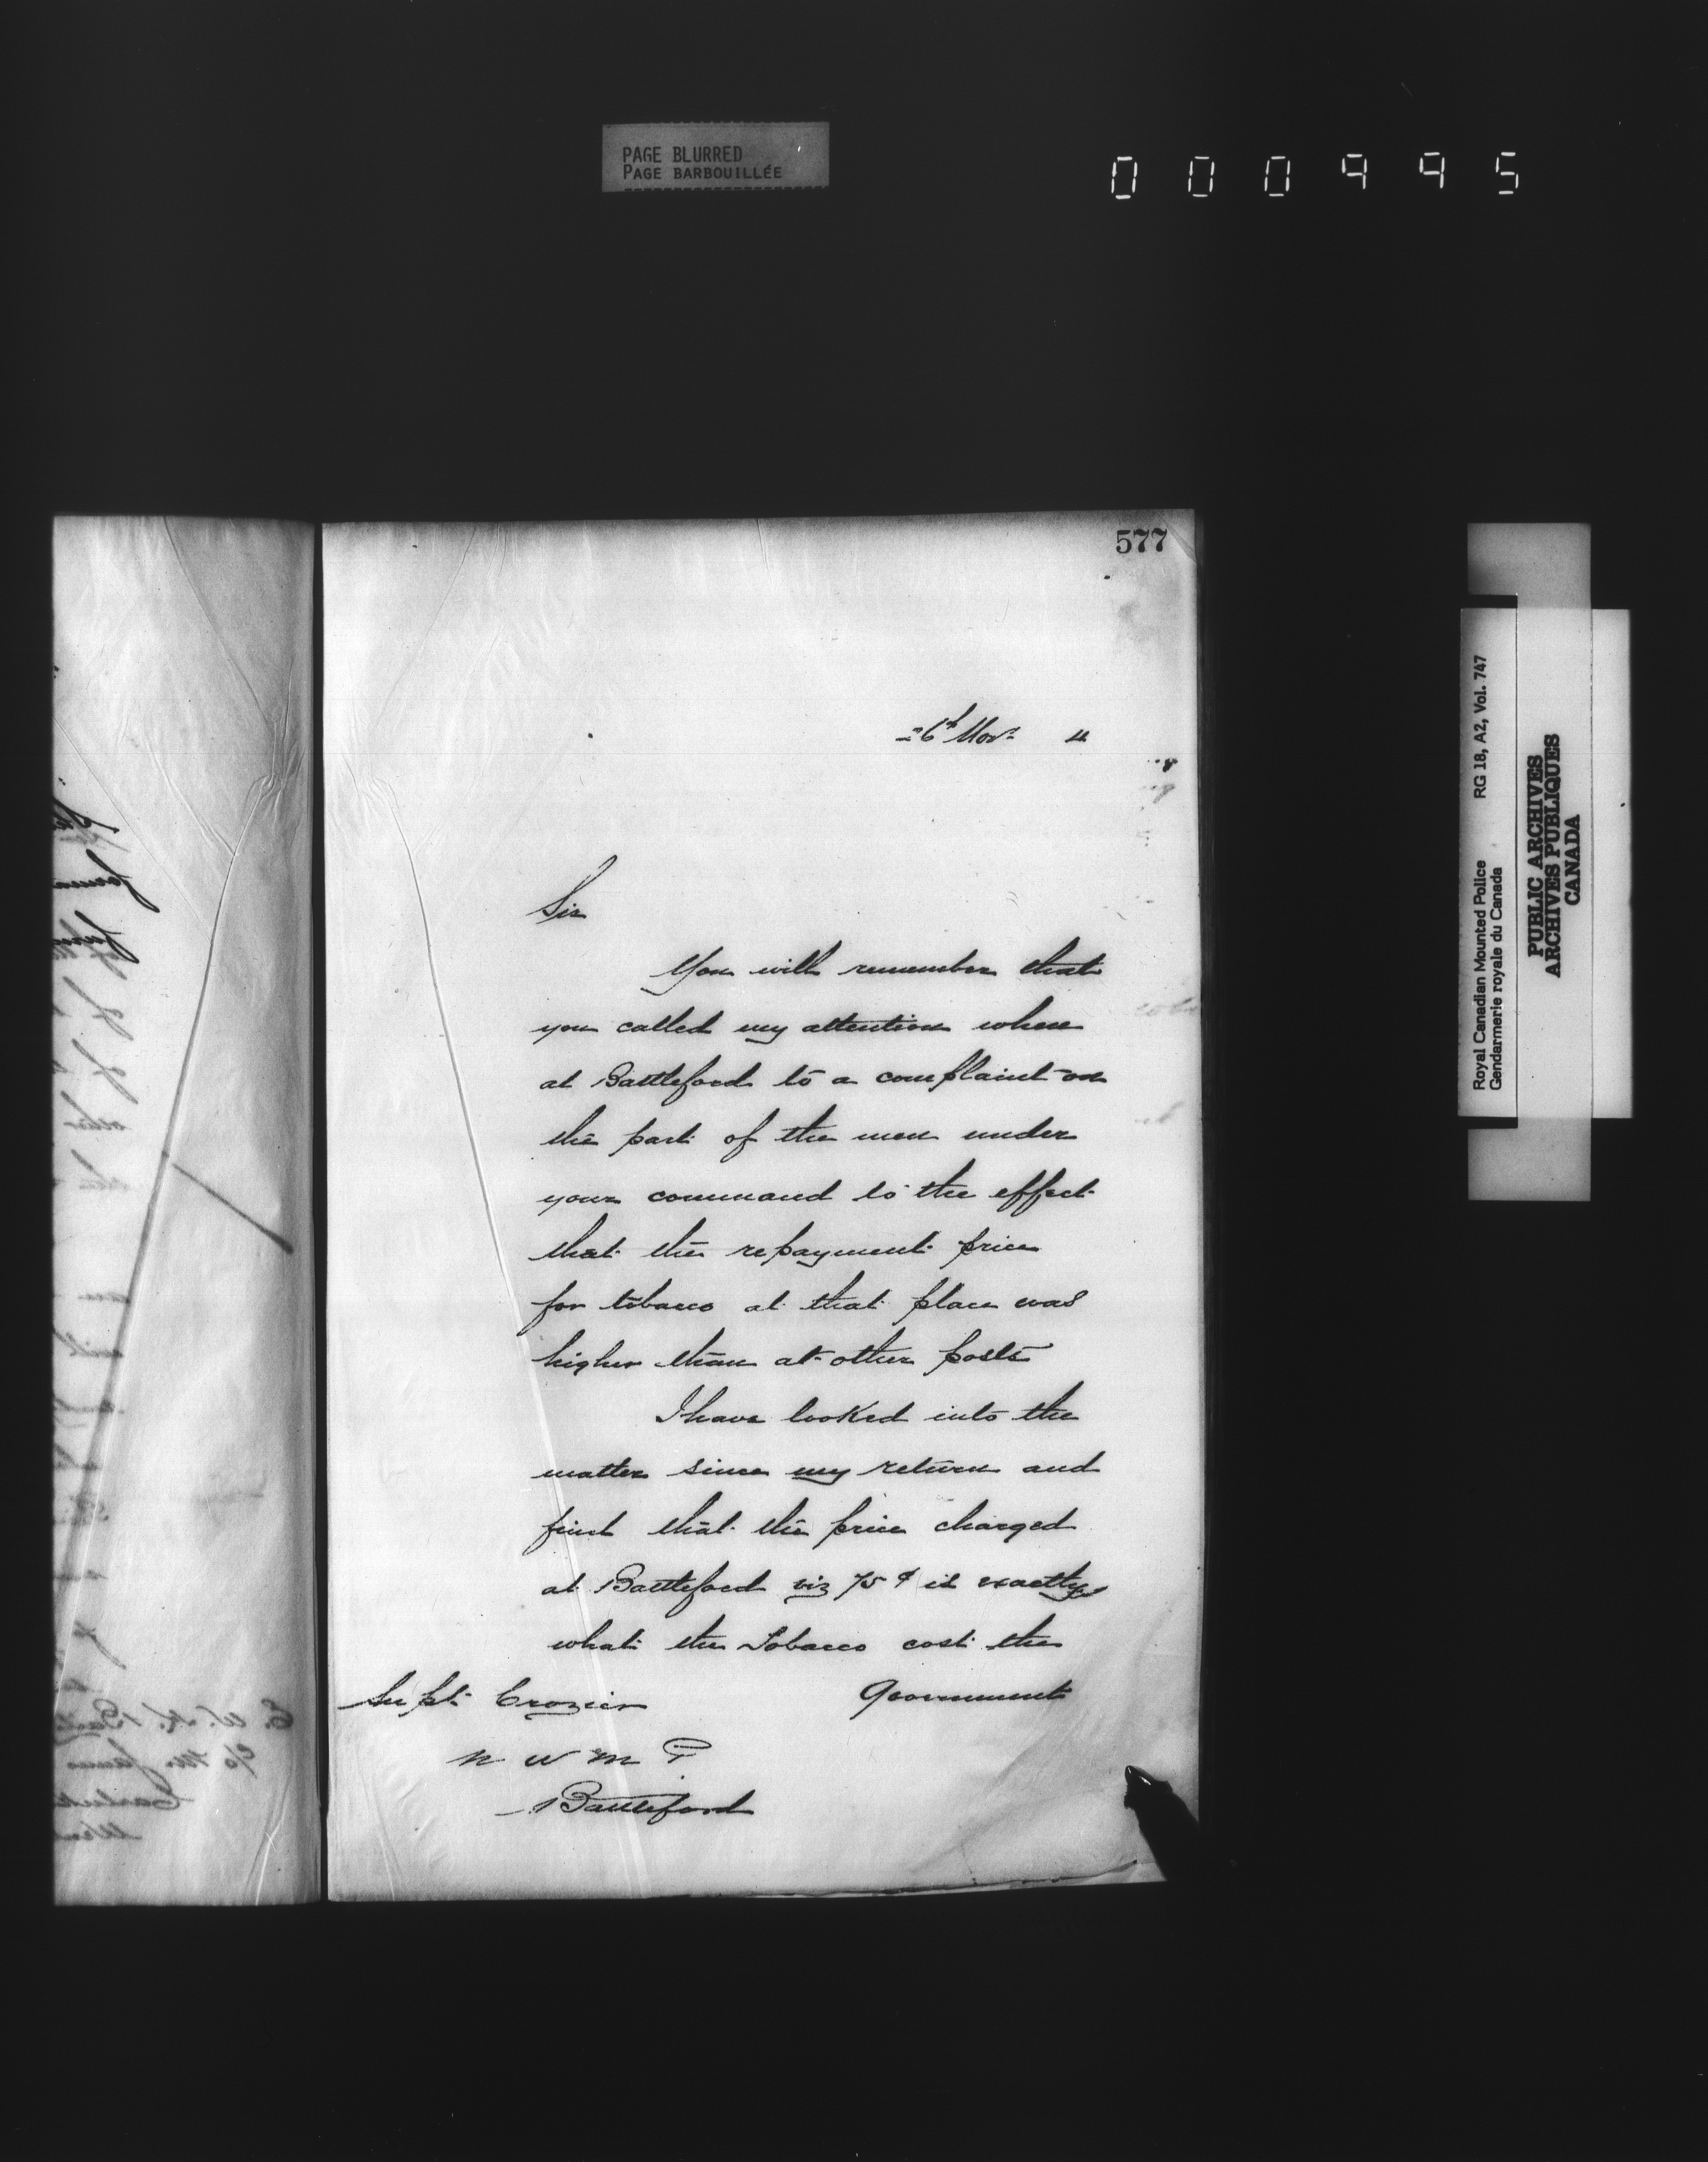 PAGE BLURRED
PAGE BARBOUILLÉE
000995
577
26th Nov. 4
Sir
You will remember that
you called my attention when
at Battleford to a complaint on
the part of the men under
your command to the effect
that the repayment price
for tobacco at that place was
higher than at other posts
I have looked into the
matter since my return and
find that the price charged
at Battleford viz 75 ¢ is exactly
what the Tobacco cost the
Government
Supt. Crozier
N W M P
Battleford
Royal Canadian Mounted Police RG 18, A2, Vol. 747
Gendarmerie royale du Canada
PUBLIC ARCHIVES
ARCHIVES PUBLIQUES
CANADA